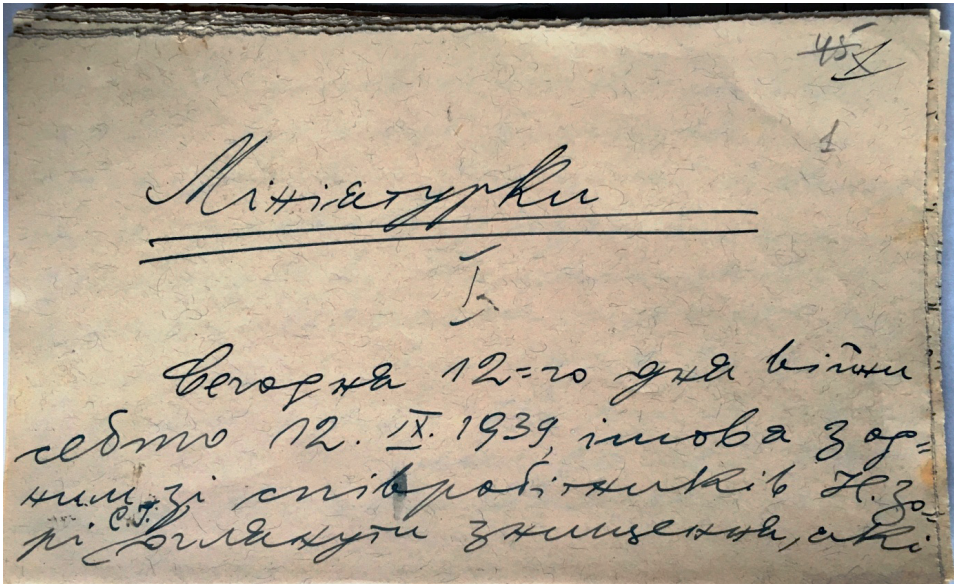 45
1
Мініатурки
I.
Сегодня 12=го дня війни
себто 12. IX. 1939, ішов я з од=
ним зі співробітників Н. Зо=
рі С.Г. оглянути знищення, які